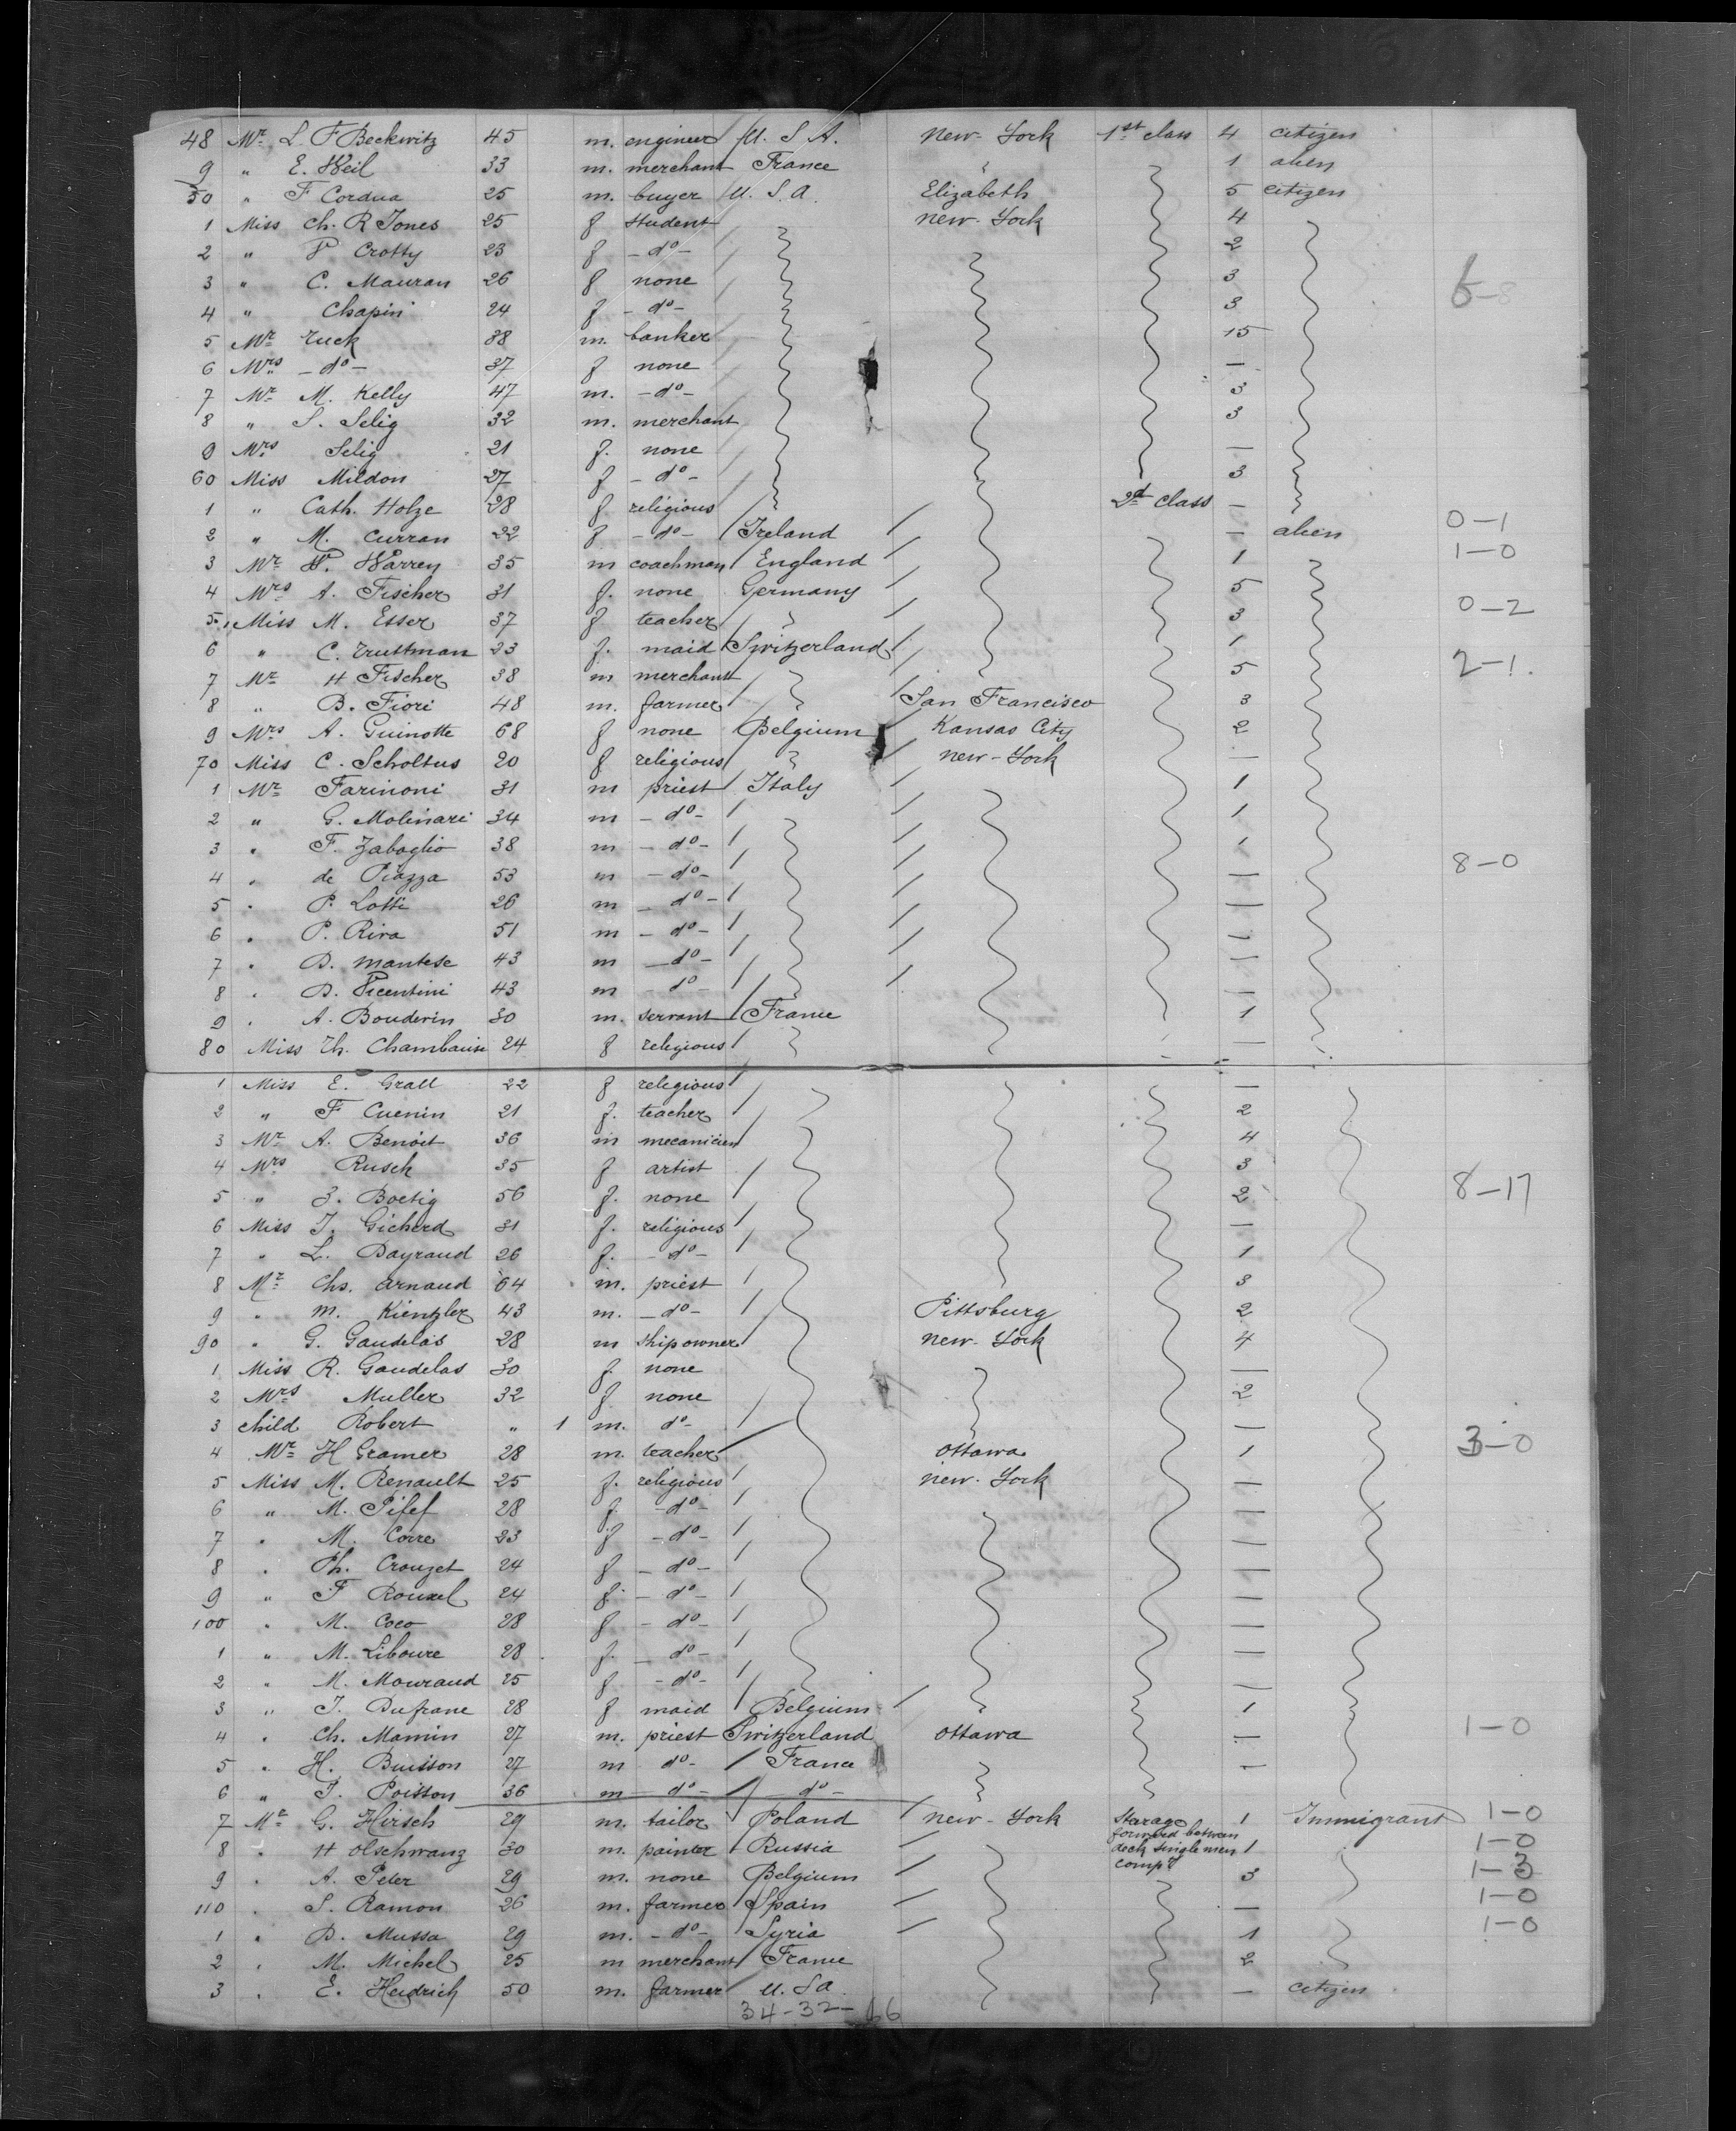 48 Mr. L. F Beckwitz 45 m. engineer U. S. A. New-York 1st class 4 citizen
9 " E. Weil 33 m. merchant France " 1 alien
50 " F Cordua 25 m. buyer U. S. A. Elizabeth 5 citizen
1 Miss Ch. R Jones 25 f student New-York 4
2 " P Crotty 23 f - do - 2
3 " C. Mauran 26 f none 3
4 " Chapin 24 f - do - 3
5 Mr Tuck 38 m. banker 15
6 Mrs - do - 37 f none —
7 Mr M. Kelly 47 m. - do - 3
8 " S. Selig 32 m. merchant 3
9 Mrs Selig 21 f. none —
60 Miss Mildon 27 f - do - 3
1 " Cath. Holze 28 f religious 2d class —
2 " M. Curran 22 f - do - Ireland — alien 0-1
3 Mr W. Warren 35 m coachman England 1 1-0
4 Mrs A. Fischer 31 f. none Germany 5
5 Miss M. Esser 37 f teacher 3 0-2
6 " C. Truttman 23 f. maid Switzerland 1
7 Mr H Fischer 38 m merchant 5 2-1.
8 " B. Fiori 48 m. farmer San Francisco 3
9 Mrs A. Guinotte 68 f none Belgium Kansas City 2
70 Miss C. Scholtus 20 f religious New-York —
1 Mr Farinoni 31 m priest Italy 1
2 " G. Molinari 34 m - do - 1
3 " F. Zaboglio 38 m - do - 1
4 " de Piazza 53 m - do - — 8-0
5 " P. Lotti 26 m - do - —
6 " P. Riva 51 m - do - —
7 " D. Mantese 43 m - do - —
8 " D. Vicentini 43 m - do - —
9 " A. Bouderin 30 m. servant France 1
80 Miss Th. Chambauise 24 f religious —
1 Miss E. Grall 22 f religious —
2 " F Cuenin 21 f. teacher 2
3 Mr A. Benoit 36 m mecanicien 4
4 Mrs Rusch 35 f artist 3
5 " J. Boetig 56 f. none 2 8-17
6 Miss J. Gicherd 31 f. religious —
7 " L. Dayraud 26 f. - do - 1
8 Mr Chs. Arnaud 64 m. priest 3
9 " M. Kientzler 43 m. - do - Pittsburg 2
90 " G. Gaudelas 28 m shipowner New-York 4
1 Miss R. Gaudelas 30 f. none —
2 Mrs Muller 32 f none 2
3 child Robert " 1 m. do - —
4 Mr H Gramer 28 m. teacher Ottawa 1 3-0
5 Miss M. Renault 25 f. religious New-York —
6 " M. Pifef 28 f. - do - —
7 " M. Corre 23 f - do - —
8 " Ph. Crouzet 24 f - do - —
9 " F Rouxel 24 f. - do - —
100 " M. Coco 28 f - do - —
1 " M. Liboure 28 f. - do - —
2 " M. Mouraud 25 f - do - —
3 " J. Dufrane 28 f maid Belgium 1
4 " Ch. Mamin 27 m. priest Switzerland Ottawa — 1-0
5 " H. Buisson 27 m do - France —
6 " J. Poisson 36 m - do - do -
7 Mr G. Hirsch 29 m. tailor Poland New-York Starage 1 Immigrant 1-0
forward between
8 " H Olschwang 30 m. painter Russia deck single men 1 1-0
compt
9 " A. Peter 29 m. none Belgium 3 1-3
110 " S. Ramon 26 m. farmer Spain — 1-0
1 " D. Mussa 29 m. - do - Syria 1 1-0
2 " M. Michel 25 m merchant France 2
3 " E. Heidrich 50 m. farmer U. S A. — citizen
34-32-66